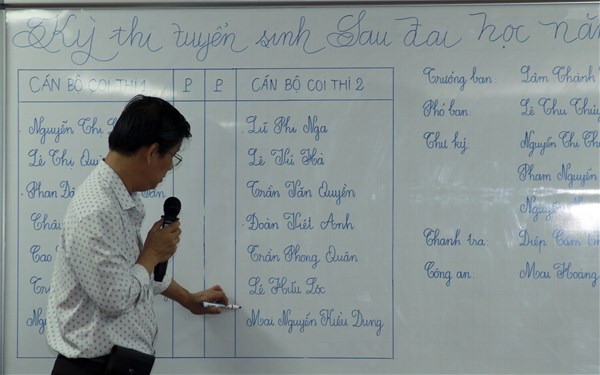 Kỳ thi tuyển sinh Sau đại học năm
CÁN BỘ COI THI 1 P P CÁN BỘ COI THI 2
Nguyễn Thị Lữ Phi Nga
Lê Thị Lê Vũ Hà
Phan Trần Văn Quyền
Đoàn Việt Anh
Cao Trần Phong Quân
Lê Hữu Lộc
Mai Nguyễn Kiều Dung
Trưởng ban: Lâm Thành
Phó ban: Lê Thu Thủy
Thư ký: Nguyễn Thị
Phạm Nguyễn
Nguyễn
Thanh tra: Diệp Cẩm
Công an: Mai Hoàng